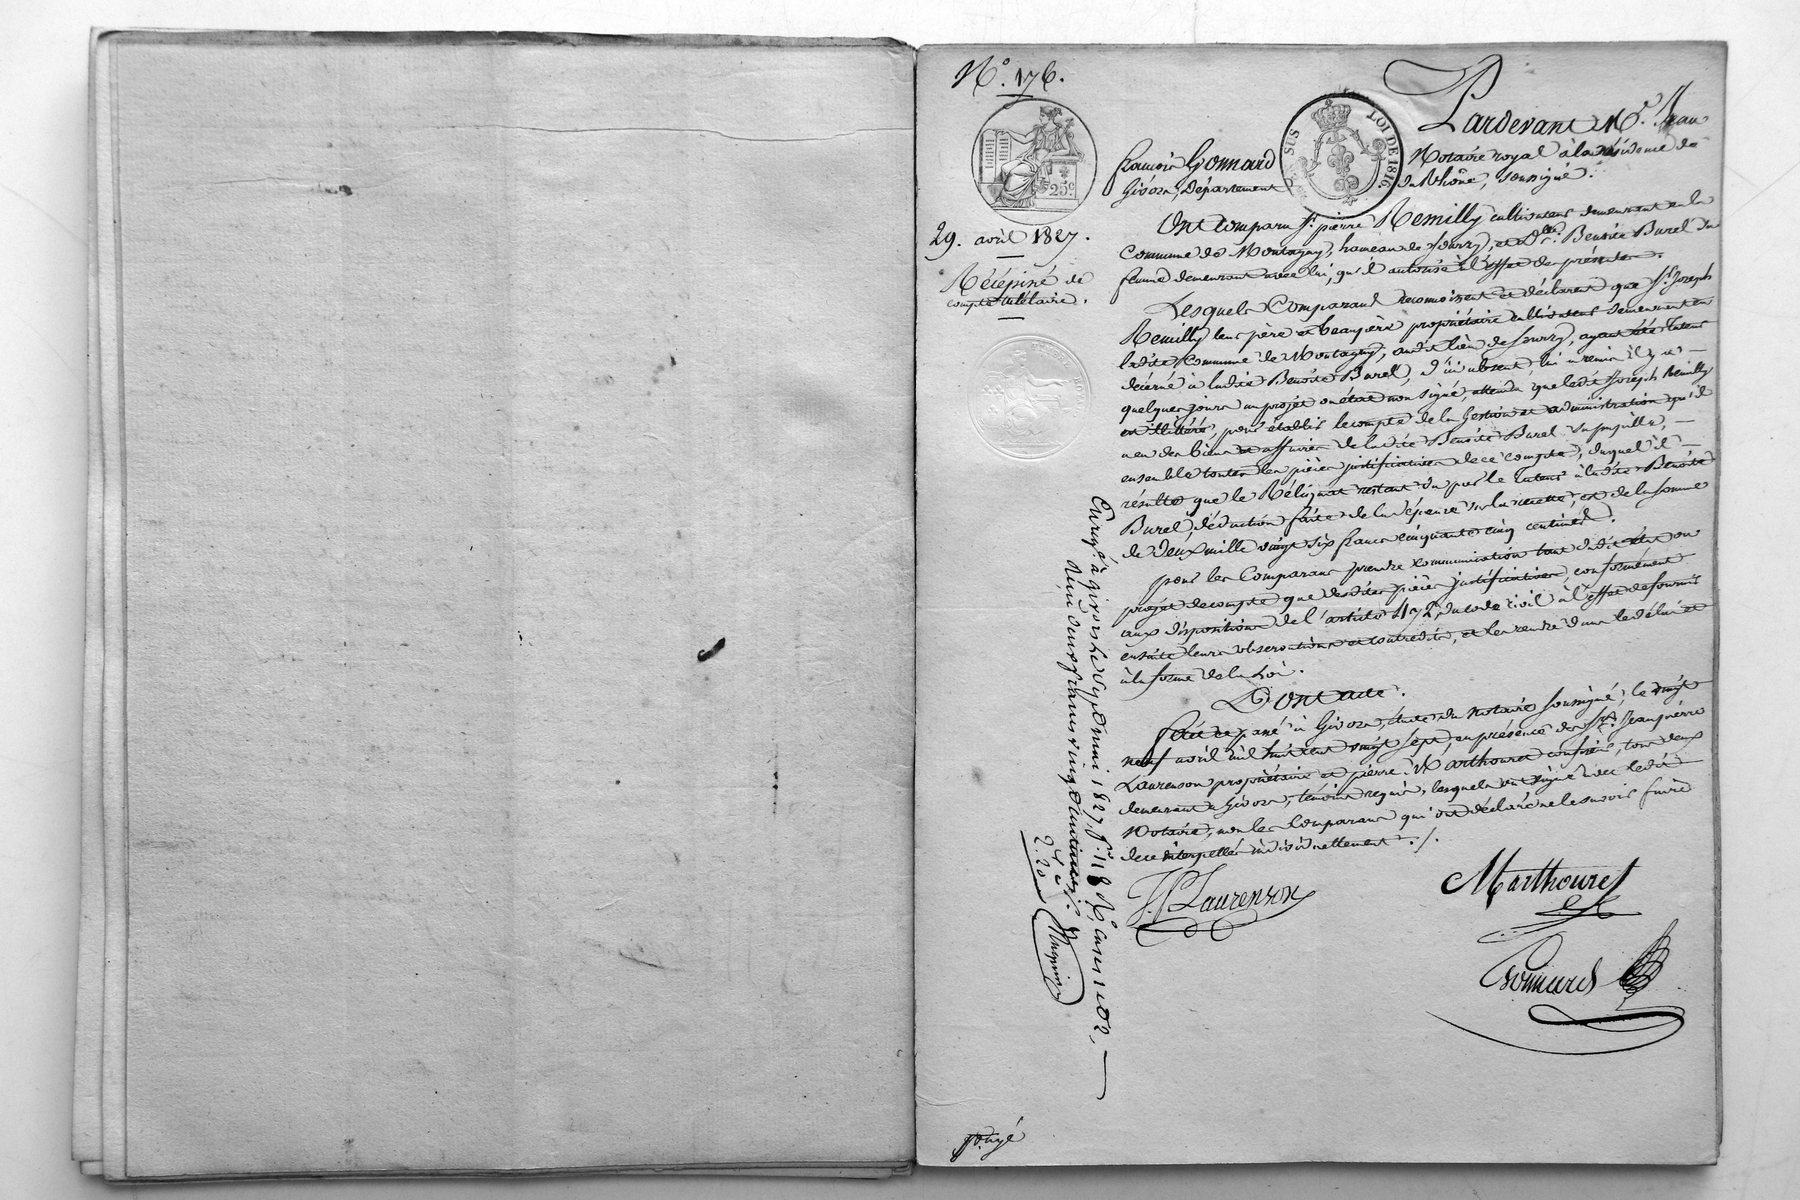 N.o 176.
25c
SUS
LOI DE 1816
29. avril 1827.
Récépissé de
compte tutélaire.
Pardevant Me. Jean
françois Gonnard Notaire royal à la résidence de
Givors, Département du Rhône, soussigné.
Ont Comparu Sr. pierre Remilly cultivateur demeurant en la
Commune de Montagny, hameau de Sourzy, et Dlle. Benoite Burel sa
femme demeurant avec lui, qu'il autorise à l'effet des présentes.
Lesquels Comparans reconnoissent et déclarent que Sr. Joseph
Remilly leur père et beaupère propriétaire cultivateur demeurant en
ladite Commune de Montagny, audit lieu de Sourzy, ayant été Tuteur
décerné à ladite Benoite Burel, d'ici absent, lui a remis il y a
quelques jours un projet ou état non signé, attendu que ledit Joseph Remilly
est illitéré, pour établir le compte de la Gestion et administration qu'il
a eu des biens et affaires de ladite Benoite Burel sa pupille,
ensemble toutes les pièces justificatives de ce compte, duquel il
résulte que le Réliquat restant du par le Tuteur à ladite Benoite
Burel, déduction faite de la dépense sur la recette, est de la somme
de deux mille vingt six francs cinquante cinq centimes.
pour les Comparans prendre communication tant dudit état ou
projet de compte que desdites pièces justificatives, conformément
aux dispositions de l'article 472 du code civil à l'effet de fournir
ensuite leurs observations et contredits, et les rendre dans le délai et
à la forme de la Loi.
Dont acte.
fait et passé à Givors, étude du notaire soussigné, le vingt
neuf avril mil huit cent vingt sept, en présence des Srs. Jean pierre
Laurenson propriétaire et pierre Marthouret confiseur, tous deux
demeurant à Givors, témoins requis, lesquels ont signé avec ledit
Notaire, non les Comparans qui ont déclaré ne le savoir faire
de ce interpellés individuellement ./.
J. P. Laurenson
Marthouret
Gonnard
Enregé. à givors le Sept mai 1827, fo. 118 Ro. cases 1 et 2,
Reçu deux francs vingt centimes.
2. 20